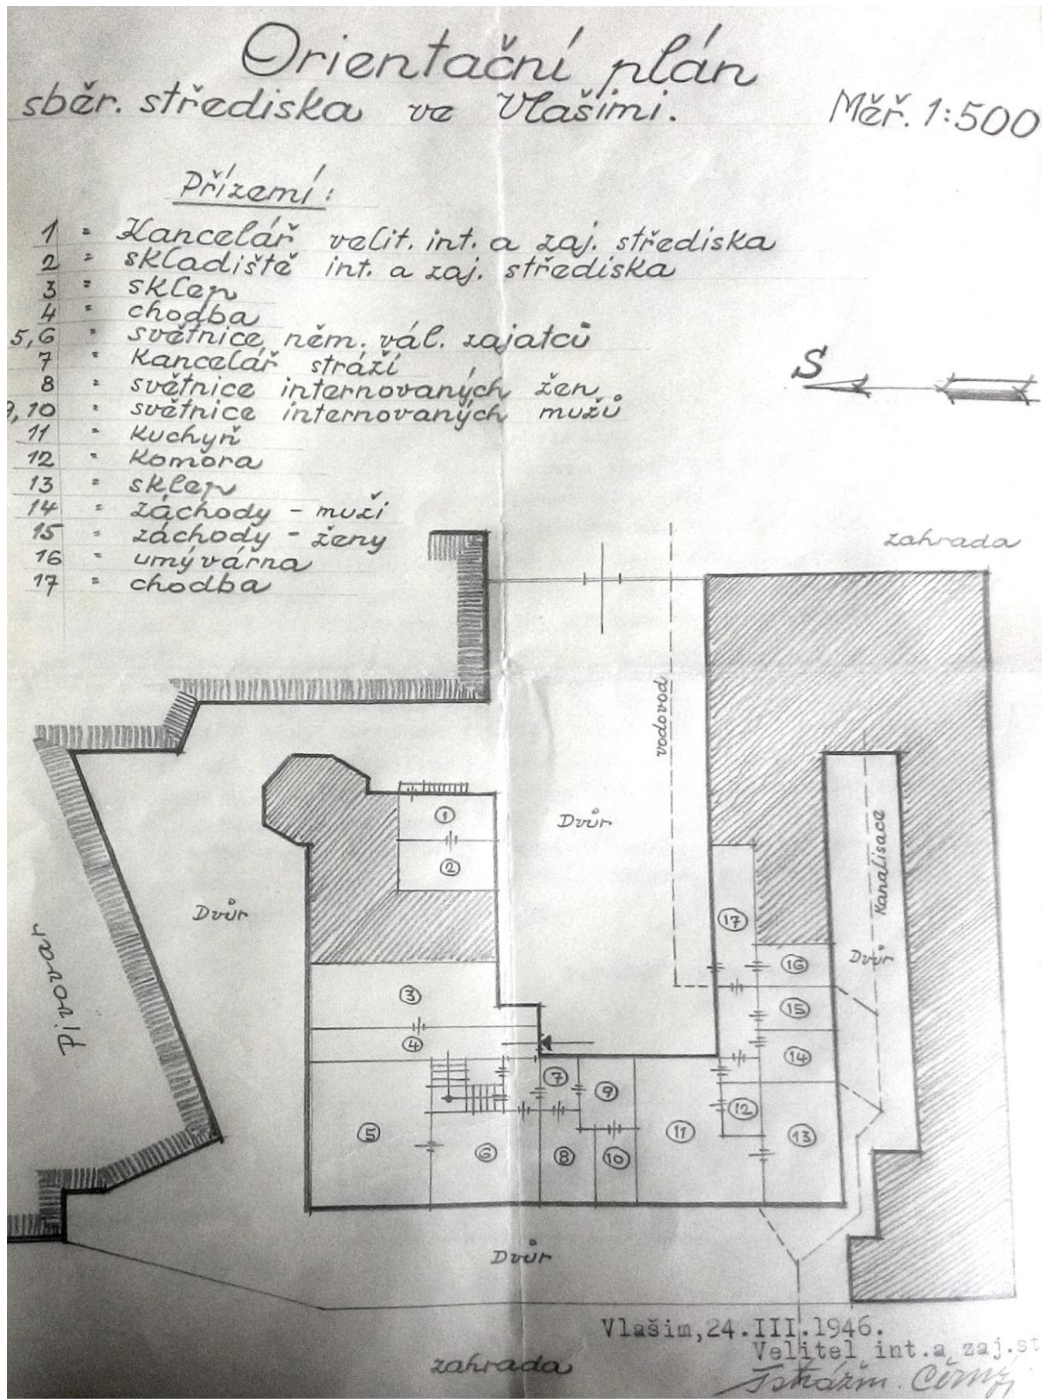 Orientační plán
sběr. střediska ve Vlašimi. Měř. 1:500
Přízemí:
1 " Kancelář velit. int. a zaj. střediska
2 " skladiště int. a zaj. střediska
3 " sklep
4 " chodba
5,6 " světnice něm. vál. zajatců
7 " Kancelář stráží
8 " světnice internovaných žen
9,10 " světnice internovaných mužů
11 " Kuchyň
12 " Komora
13 " sklep
14 " záchody - muži
15 " záchody - ženy
16 " umývárna
17 " chodba
S
zahrada
vodovod
Dvůr
1
2
Kanalisace
Dvůr
17
Pivovar
16
Dvůr
3
15
4
14
7
9
12
5
6
8
10
11
13
Dvůr
Vlašim,24.III.1946.
Velitel int.a zaj.st
zahrada
Černý